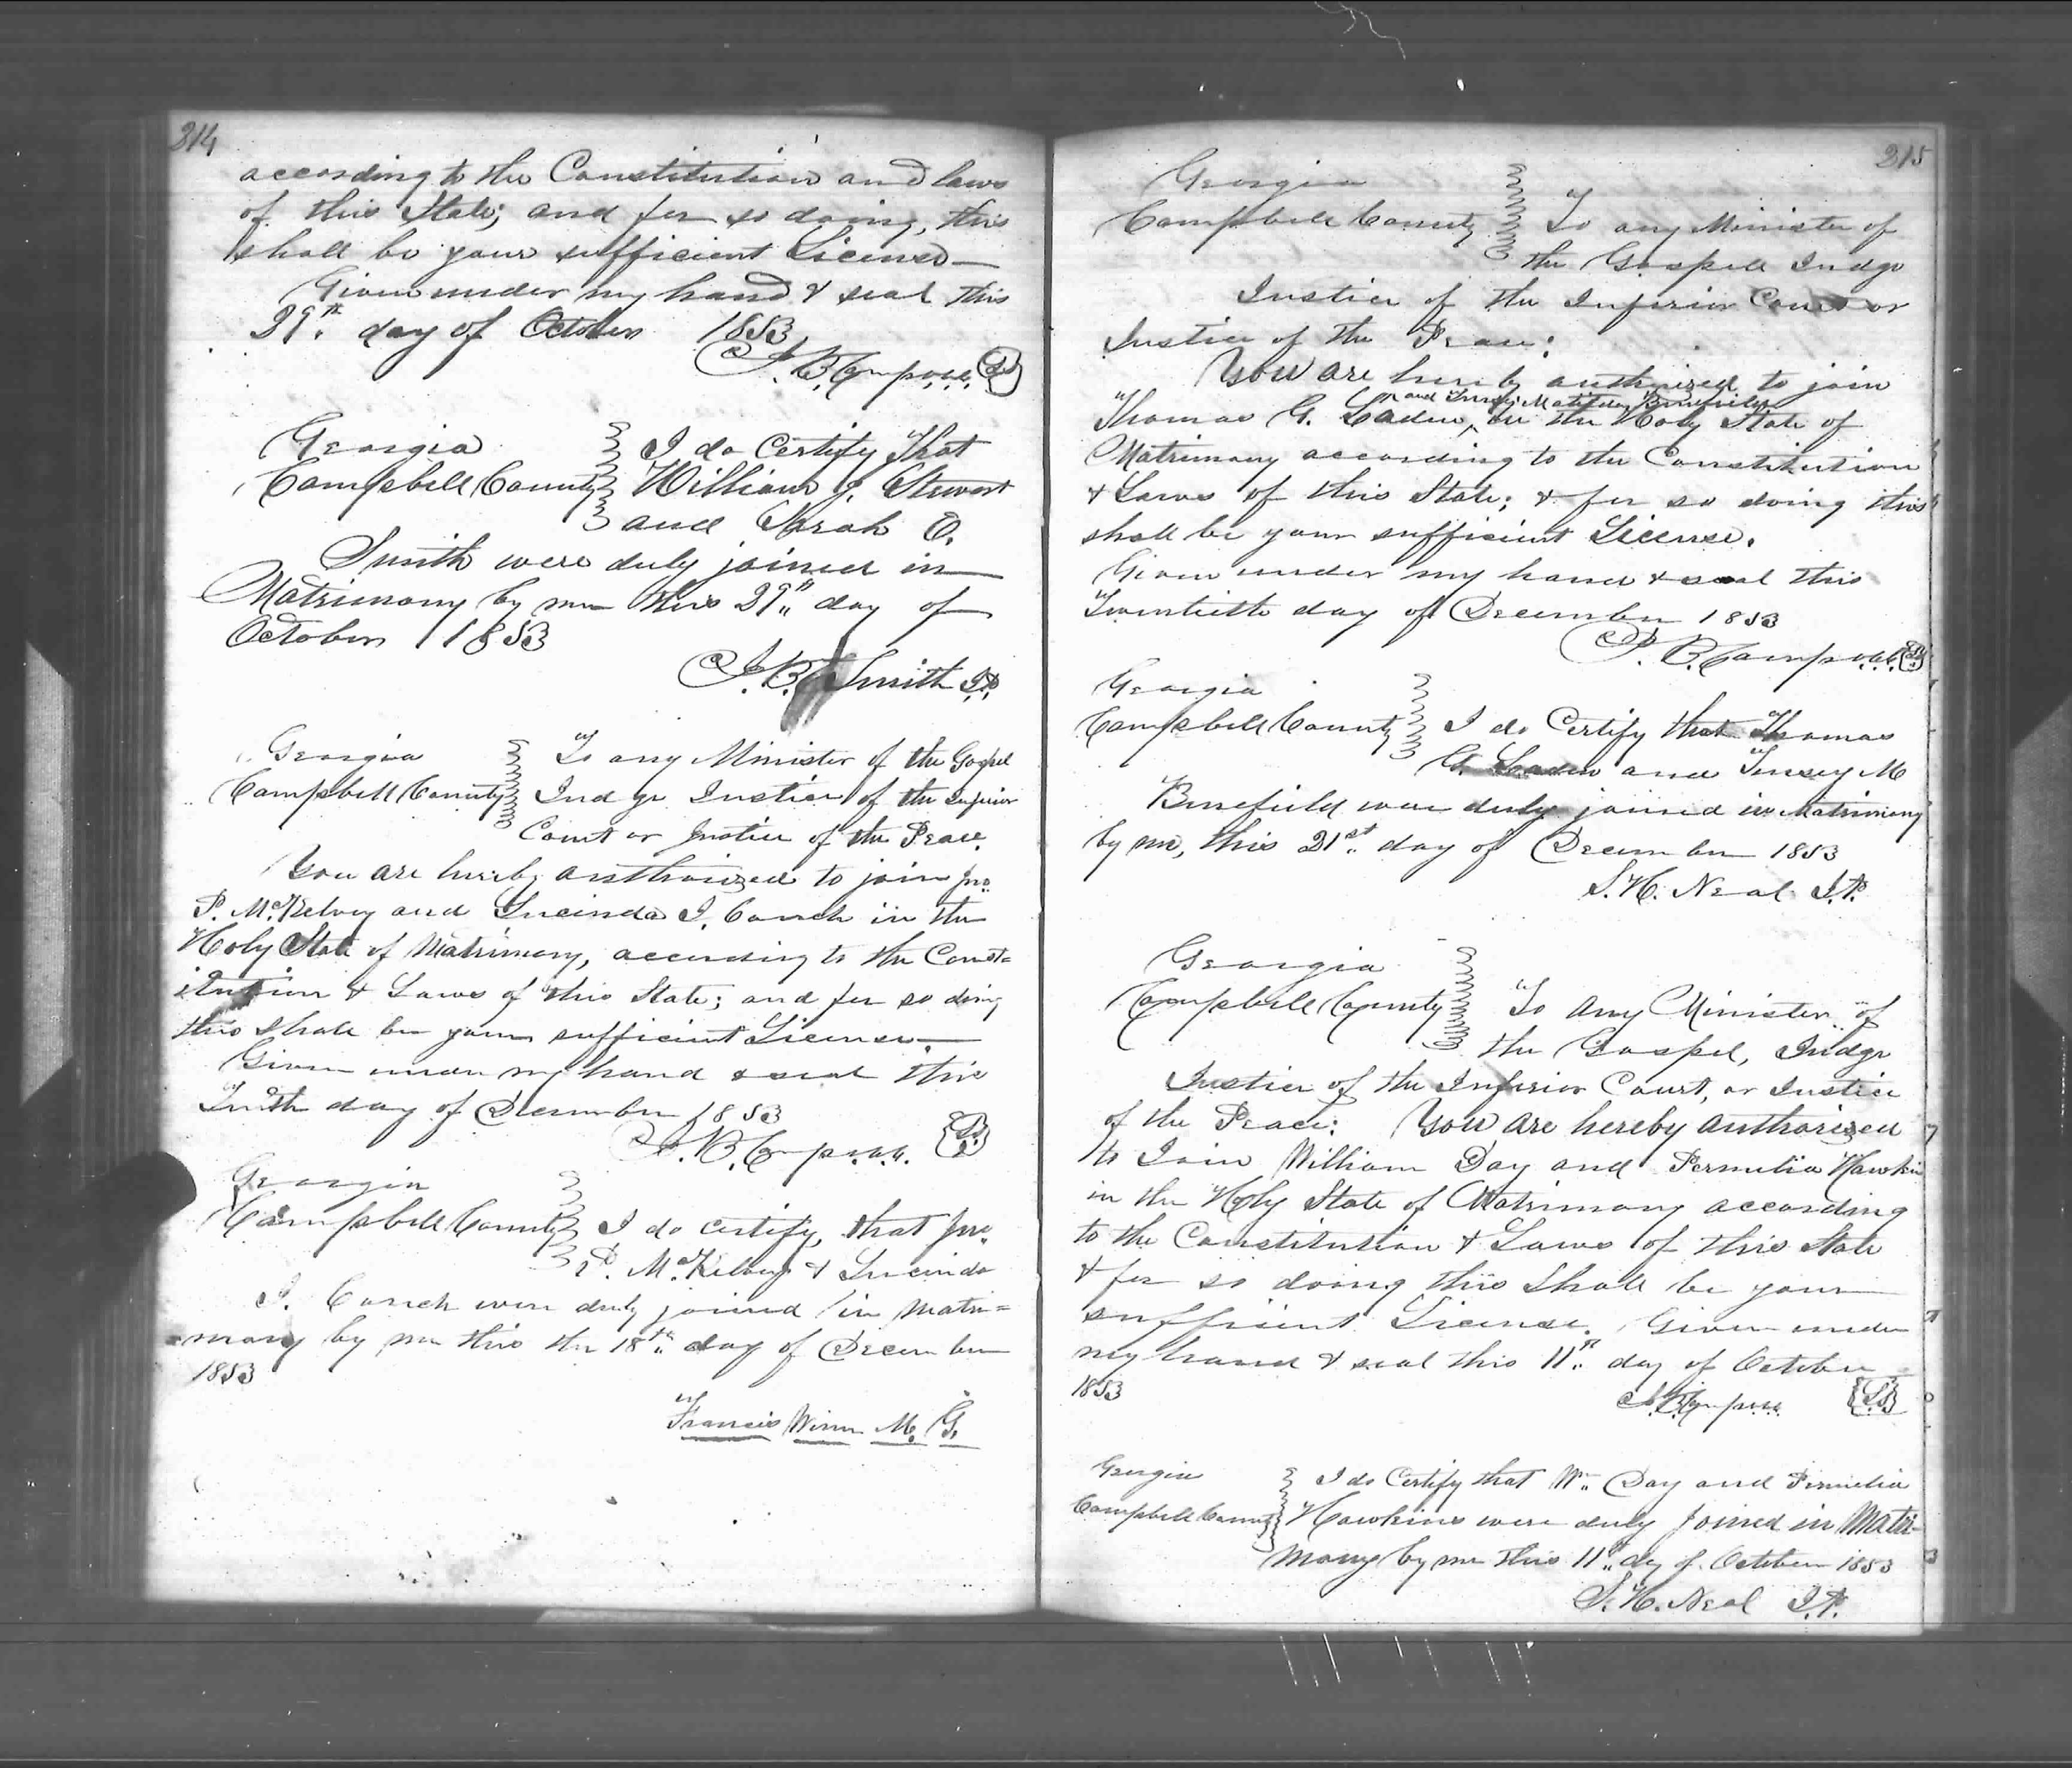 214
according to the Constitution and laws
of this State; and for so doing, this
shall be your sufficient License
Given under my hand & seal this
29th day of October 1853
R.C. Beavers
Georgia
Campbell County
I do Certify that
William J. Stewart
and Sarah E.
Smith were duly joined in
Matrimony by me this 29th day of
October 1853
Smith J.P.
Georgia
Campbell County
To any Minister of the Gospel
Judge Justice of the Inferior
Court or Justice of the Peace.
You are hereby authorized to join Jno.
P. McKelvey and Lucinda J. Couch in the
Holy State of Matrimony, according to the Const=
itution & Laws of this State; and for so doing
this shall be your sufficient License.
Given under my hand & seal this
Tenth day of December 1853
Georgia
Campbell County
I do certify, that Jno.
P. McKelvey & Lucinda
J. Couch were duly joined in Matri=
mony by me this the 18th day of December
1853
Francis Winn M. G.
215
Georgia
Campbell County
To any Minister of
the Gospell Judge
Justice of the Inferior Court or
Justice of the Peace:
You are hereby authorized to join
and Matilda Benefield
Thomas G. in the Holy State of
Matrimony according to the Constitution
& Laws of this State; & for so doing this
shall be your sufficient License.
Given under my hand & seal this
Twentieth day of December 1853
Georgia
Campbell County
I do Certify that Thomas
G. and M
Benefield were duly joined in Matrimony
by me, this 21st day of December 1853
S. H. Neal J.P.
Georgia
Campbell County
To any Minister of
the Gospel, Judge
Justice of the Inferior Court, or Justice
of the Peace: You are hereby authorized
to Join William Day and Permelia Hawkins
in the Holy State of Matrimony according
to the Constitution & Laws of this State
& for so doing this shall be your
sufficient License. Given under
my hand & seal this 11th day of October
1853
Georgia
Campbell County
I do Certify that Wm. Day and Permelia
Hawkins were duly Joined in Matri-
mony by me this 11th day of October 1853
S. H. Neal J.P.